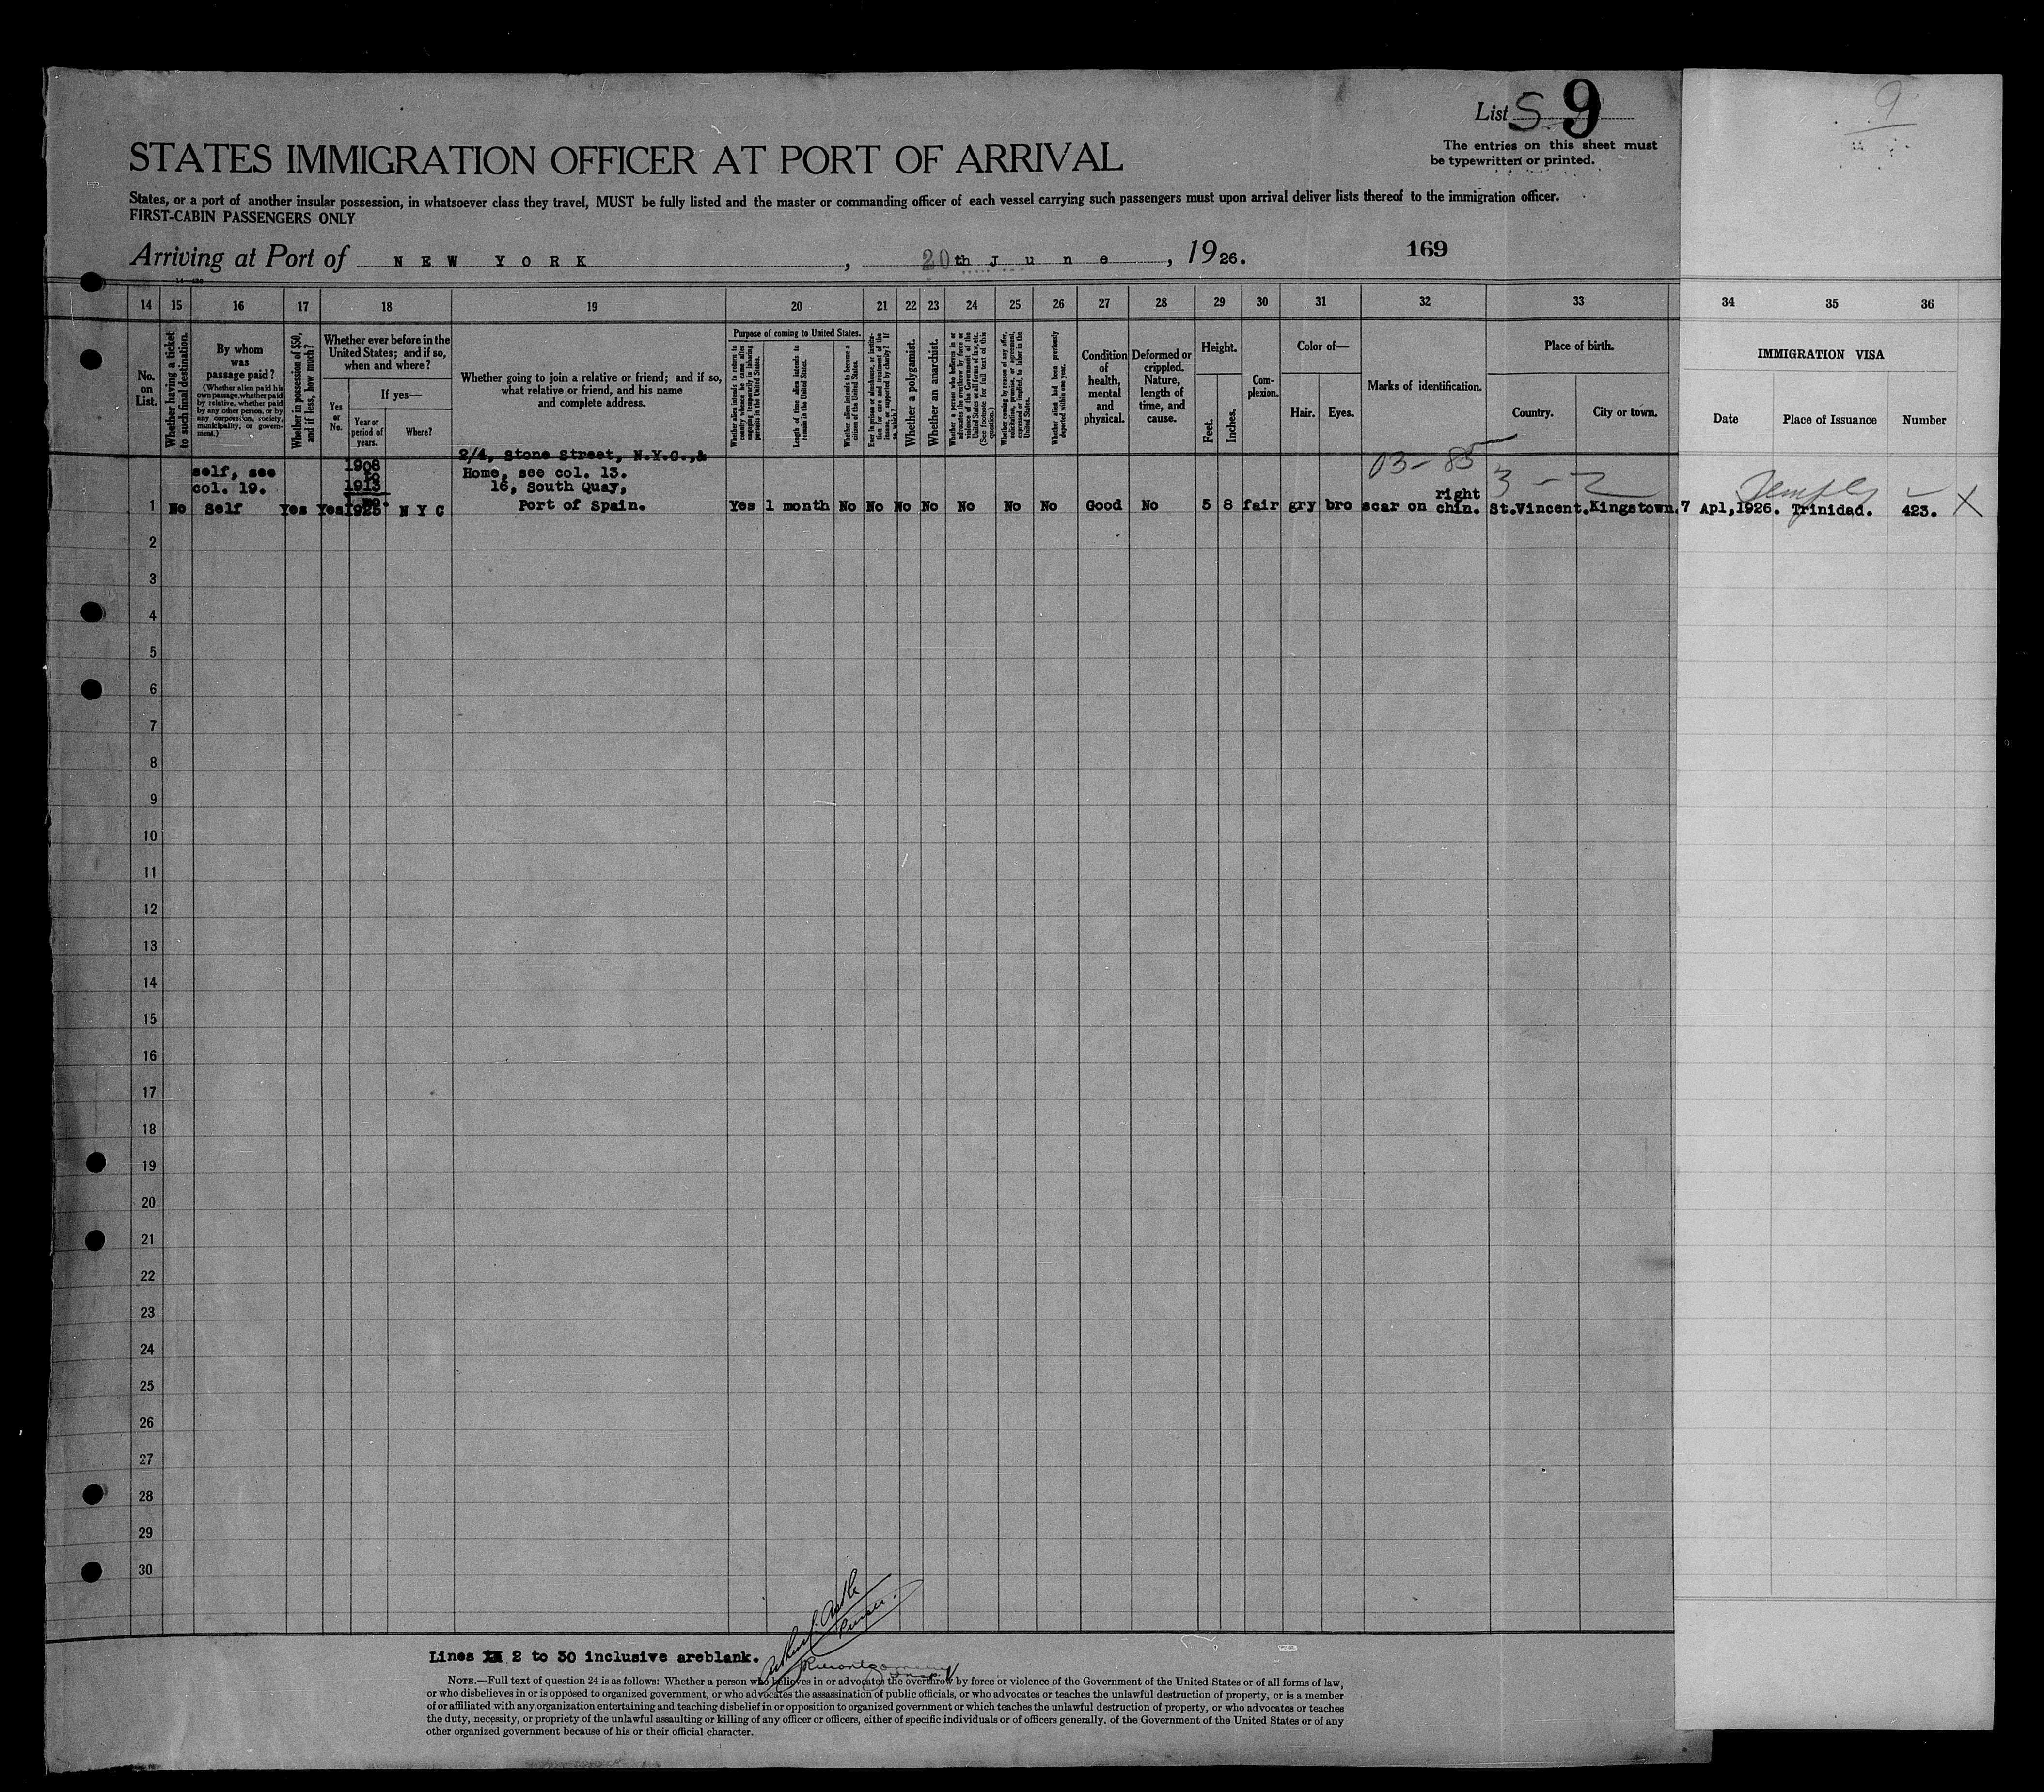 List S 9
The entries on this sheet must
be typewritten or printed.
9
STATES IMMIGRATION OFFICER AT PORT OF ARRIVAL
States, or a port of another insular possession, in whatsoever class they travel, MUST be fully listed and the master or commanding officer of each vessel carrying such passengers must upon arrival deliver lists thereof to the immigration officer.
FIRST-CABIN PASSENGERS ONLY
Arriving at Port of NEW YORK, 20th June, 1926. 169
14 15 16 17 18 19 20 21 22 23 24 25 26 27 28 29 30 31 32 33 34 35 36
No. on List.
Whether having a ticket to such final destination.
By whom was passage paid?
(Whether alien paid his own passage, whether paid by relative, whether paid by any other person, or by any corporation, society, municipality, or government.)
Whether in possession of $50, and if less, how much?
Whether ever before in the United States; and if so, when and where?
Yes or No.
If yes—
Year or period of years.
Where?
Whether going to join a relative or friend; and if so, what relative or friend, and his name and complete address.
Purpose of coming to United States.
Whether alien intends to return to country whence he came after engaging temporarily in laboring pursuits in the United States.
Length of time alien intends to remain in the United States.
Whether alien intends to become a citizen of the United States.
Ever in prison or almshouse, or institution for care and treatment of the insane, or supported by charity? If so, which?
Whether a polygamist.
Whether an anarchist.
Whether a person who believes in or advocates the overthrow by force or violence of the Government of the United States or all forms of law, etc. (See footnote for full text of this question.)
Whether coming by reason of any offer, solicitation, promise, or agreement, expressed or implied, to labor in the United States.
Whether alien had been previously deported within one year.
Condition of health, mental and physical.
Deformed or crippled. Nature, length of time, and cause.
Height.
Feet.
Inches.
Complexion.
Color of—
Hair.
Eyes.
Marks of identification.
Place of birth.
Country.
City or town.
IMMIGRATION VISA
Date
Place of Issuance
Number
2/4, Stone Street, N.Y.C.,&
self, see 1908 Home, see col. 13. 03-85
col. 19. to 1913 16, South Quay, right 3 - 2
1 No Self Yes Yes 1925 N Y C Port of Spain. Yes 1 month No No No No No No No Good No 5 8 fair gry bro scar on chin. St.Vincent. Kingstown. 7 Apl,1926. Trinidad. 423. X
2
3
4
5
6
7
8
9
10
11
12
13
14
15
16
17
18
19
20
21
22
23
24
25
26
27
28
29
30
Lines 2 to 30 inclusive areblank.
Purser.
NOTE.—Full text of question 24 is as follows: Whether a person who believes in or advocates the overthrow by force or violence of the Government of the United States or of all forms of law,
or who disbelieves in or is opposed to organized government, or who advocates the assassination of public officials, or who advocates or teaches the unlawful destruction of property, or is a member
of or affiliated with any organization entertaining and teaching disbelief in or opposition to organized government or which teaches the unlawful destruction of property, or who advocates or teaches
the duty, necessity, or propriety of the unlawful assaulting or killing of any officer or officers, either of specific individuals or of officers generally, of the Government of the United States or of any
other organized government because of his or their official character.